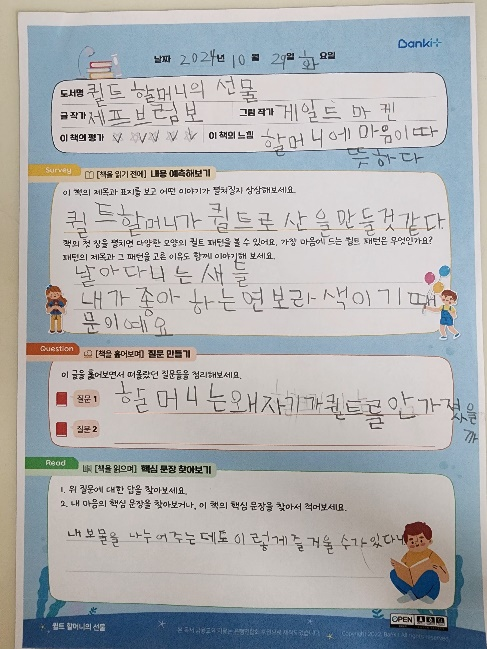 Banki+
날짜 2024년 10월 29일 화요일
도서명 퀼트 할머니의 선물
글 작가 제프브럼보 그림 작가 게일드 마켄
이 책의 평가 ☆☆☆☆☆ 이 책의 느낌 할머니에 마음이 따
뜻하다
Survey [책을 읽기 전에] 내용 예측해보기
이 책의 제목과 표지를 보고 어떤 이야기가 펼쳐질지 상상해보세요.
퀼트할머니가 퀼트로 산을만들것같다.
책의 첫 장을 펼치면 다양한 모양의 퀼트 패턴을 볼 수 있어요. 가장 마음에 드는 퀼트 패턴은 무엇인가요?
패턴의 제목과 그 패턴을 고른 이유도 함께 이야기해 보세요.
날아다니는새들
내가 좋아하는연보라색이기때
문이예요
Question [책을 훑어보며] 질문 만들기
이 글을 훑어보면서 떠올랐던 질문들을 정리해보세요.
질문 1 할머니는왜자기가퀼트를안가졌을
까
질문 2
Read [책을 읽으며] 핵심 문장 찾아보기
1. 위 질문에 대한 답을 찾아보세요.
2. 내 마음의 핵심 문장을 찾아보거나, 이 책의 핵심 문장을 찾아서 적어보세요.
내보물을 나누어주는데도 이렇게즐거울 수가있다니
퀼트 할머니의 선물
OPEN